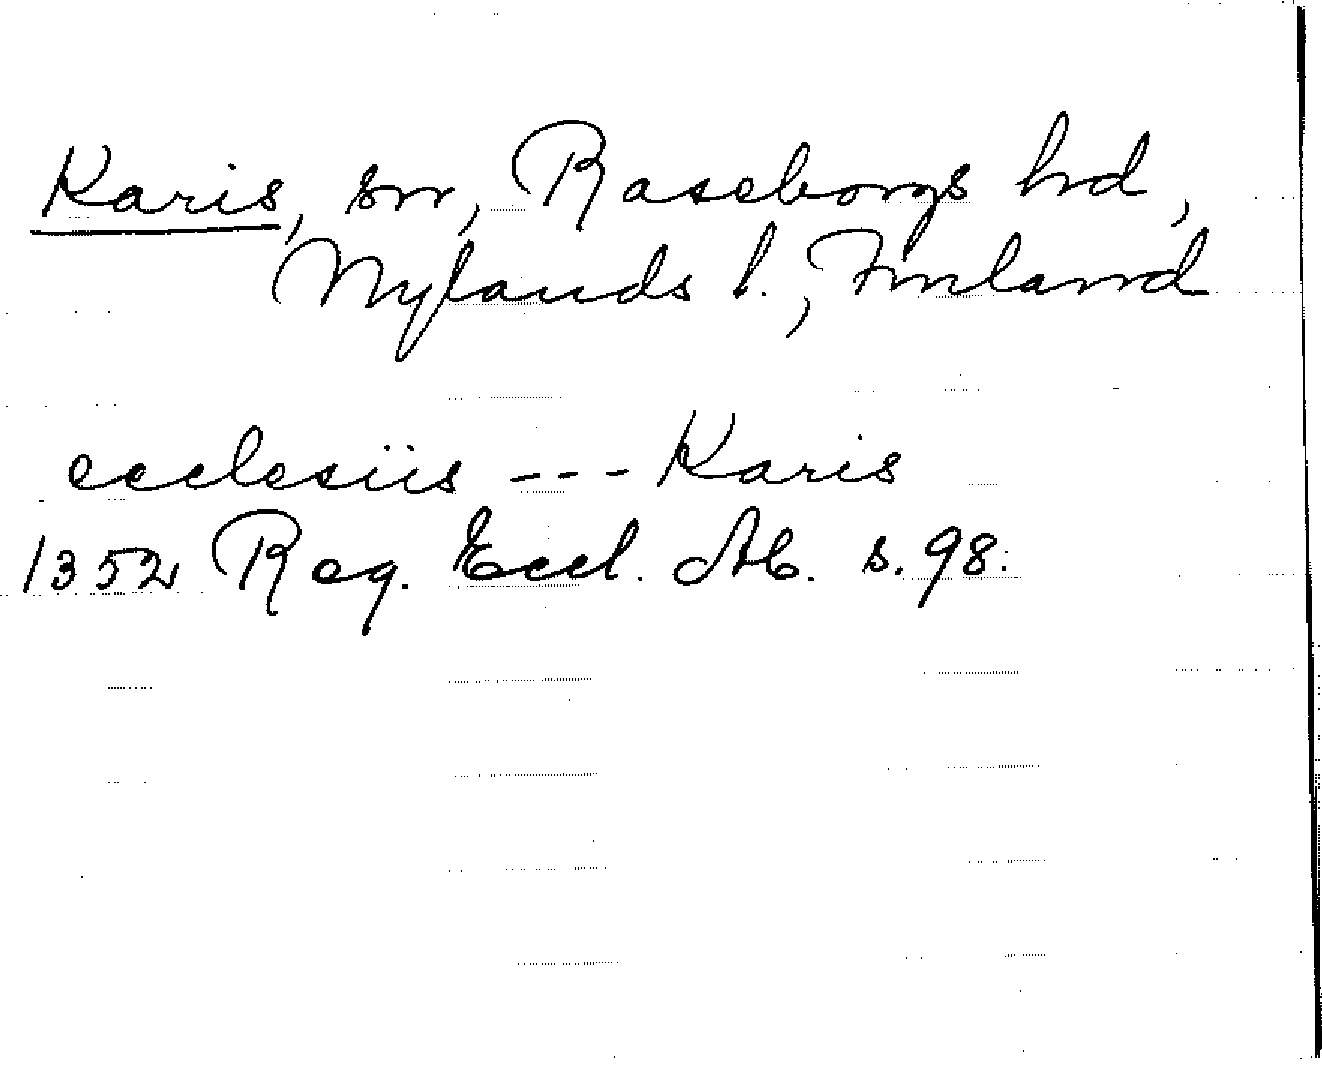 Karis, sn, Raseborgs hd,
Nylands l., Finland
ecclesiis --- Karis
1352 Reg. Eccl. Ab. s. 98.